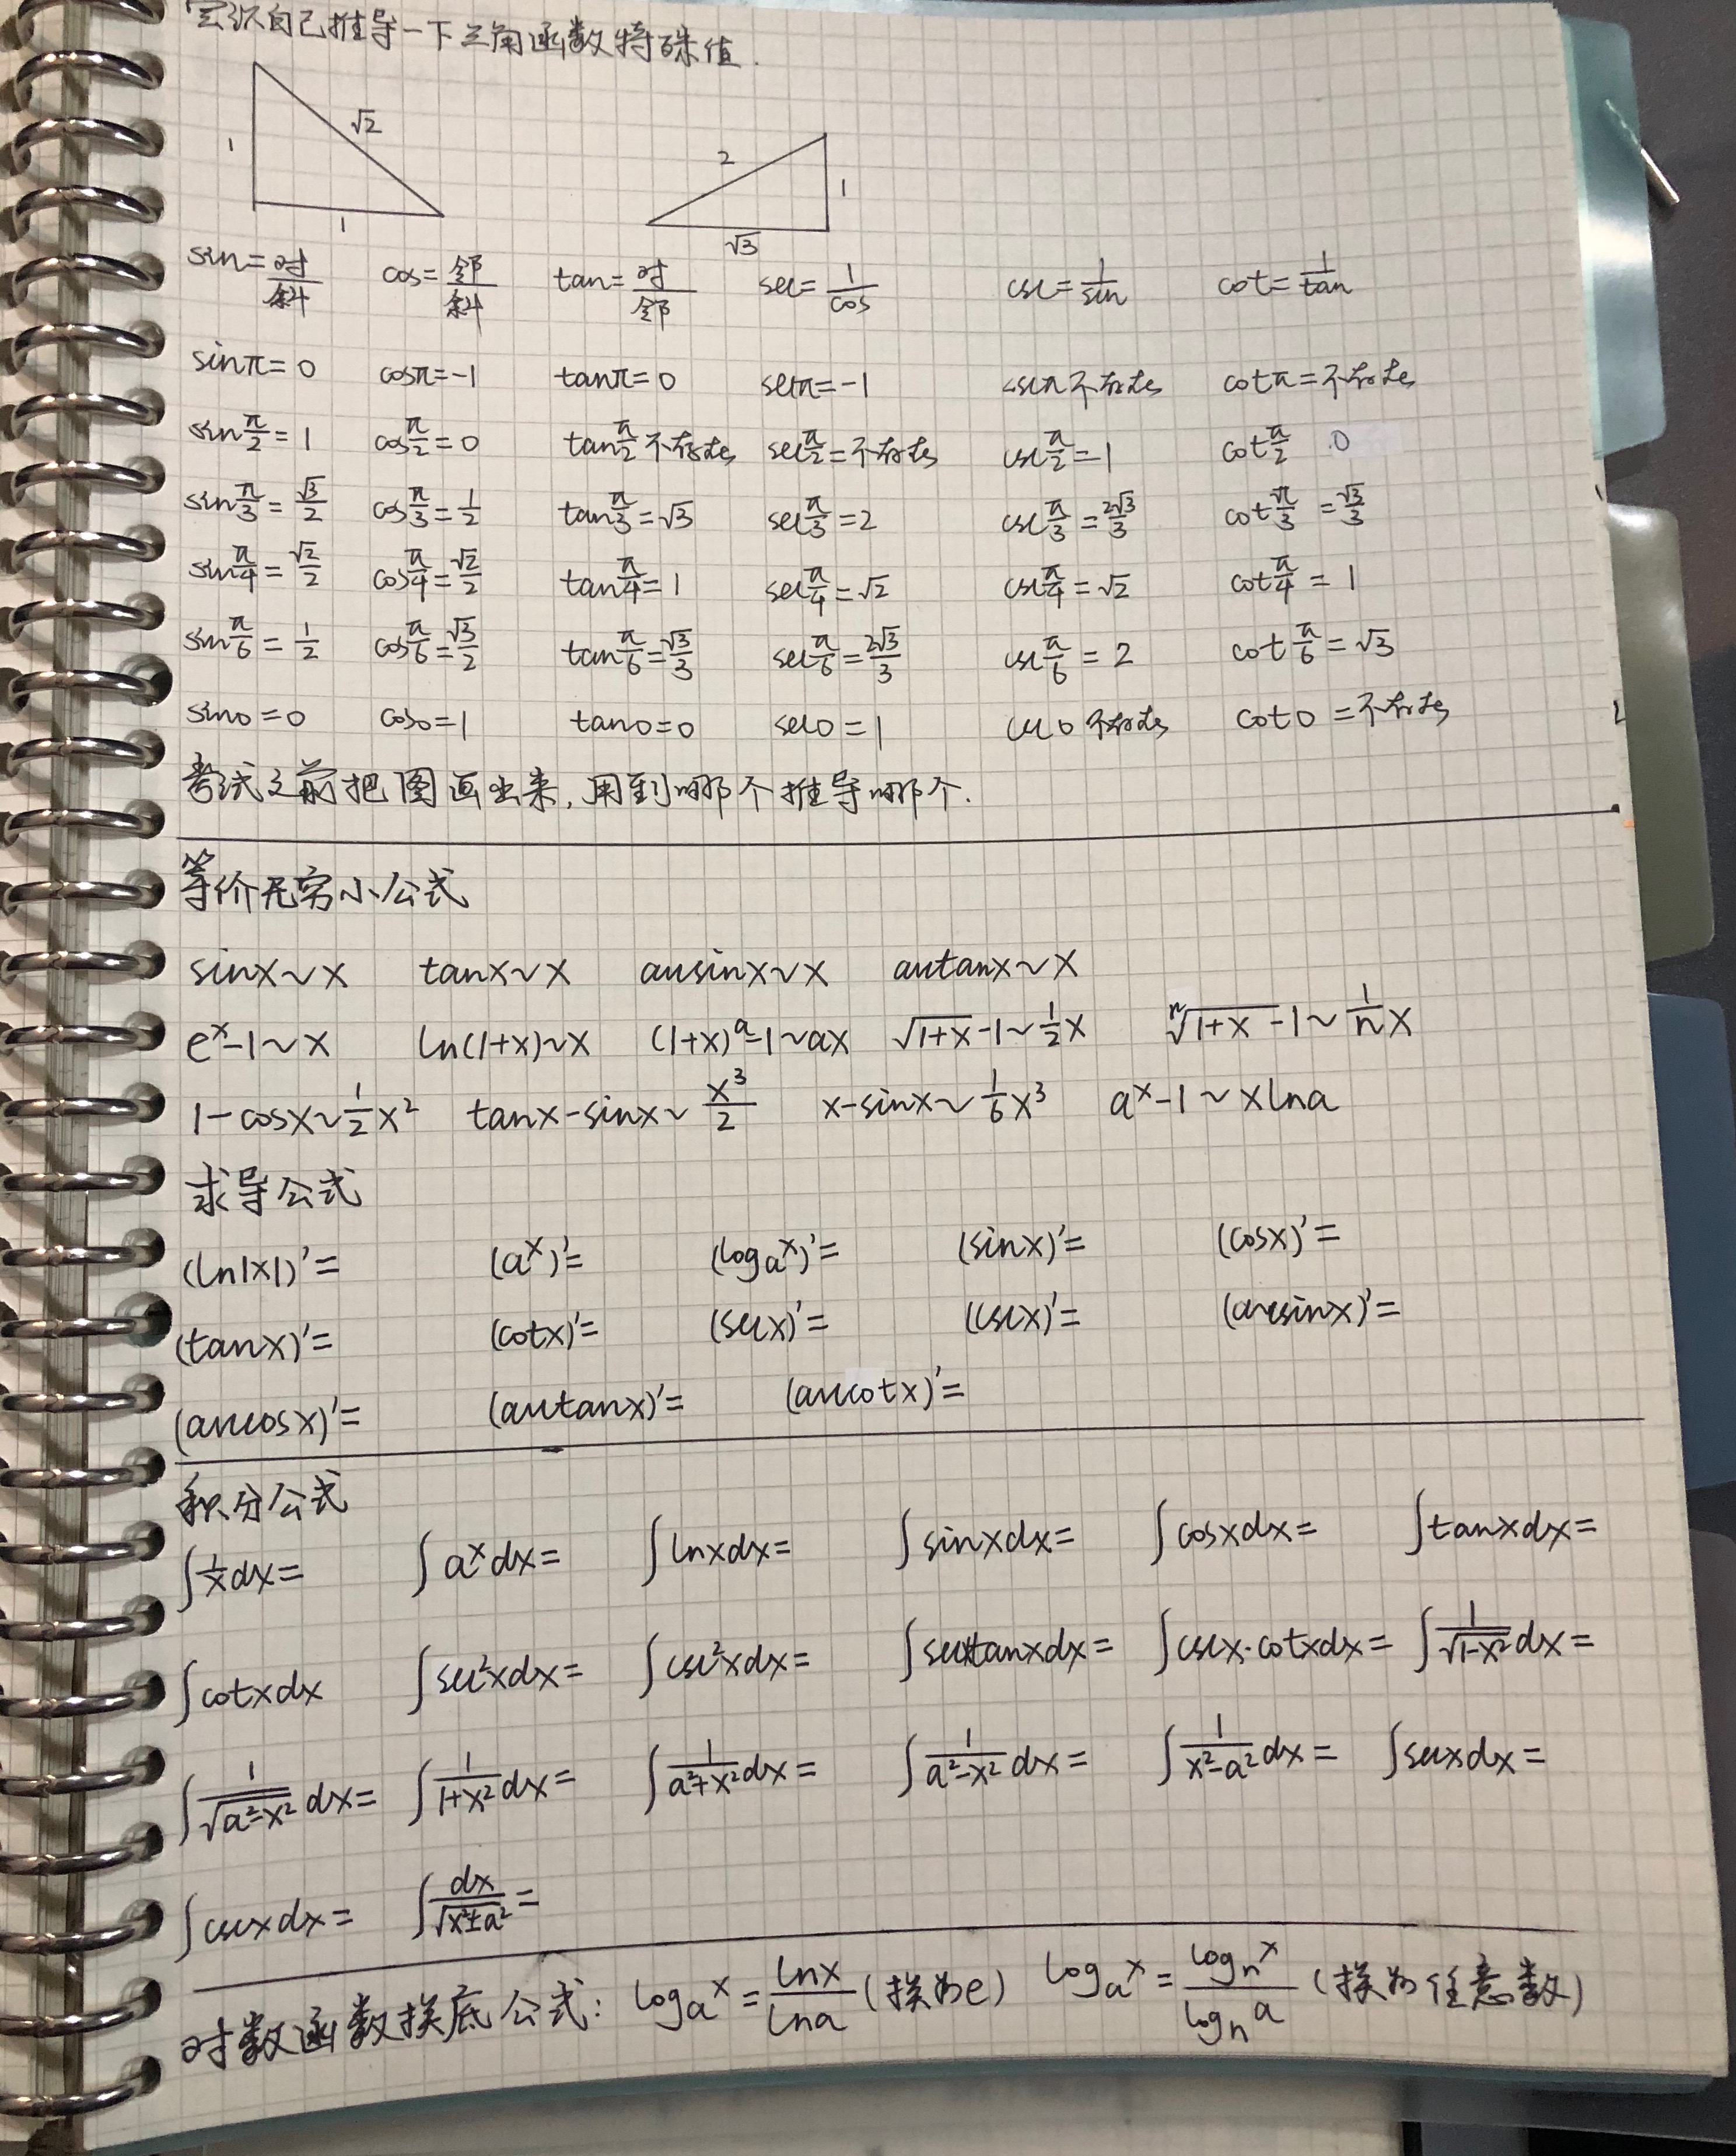 自己推导一下三角函数特殊值.
√2 1 1
2 1 √3
sin=对/斜 cos=邻/斜 tan=对/邻 sec=1/cos csc=1/sin cot=1/tan
sinπ=0 cosπ=-1 tanπ=0 secπ=-1 cscπ不存在 cotπ=不存在
sinπ/2=1 cosπ/2=0 tanπ/2不存在 secπ/2=不存在 cscπ/2=1 cotπ/2 0
sinπ/3=√3/2 cosπ/3=1/2 tanπ/3=√3 secπ/3=2 cscπ/3=2√3/3 cotπ/3=√3/3
sinπ/4=√2/2 cosπ/4=√2/2 tanπ/4=1 secπ/4=√2 cscπ/4=√2 cotπ/4=1
sinπ/6=1/2 cosπ/6=√3/2 tanπ/6=√3/3 secπ/6=2√3/3 cscπ/6=2 cotπ/6=√3
sin0=0 cos0=1 tan0=0 sec0=1 csc0不存在 cot0=不存在
考试之前把图画出来,用到哪个推导哪个.
等价无穷小公式
sinx~x tanx~x arcsinx~x arctanx~x
eˣ-1~x ln(1+x)~x (1+x)ᵃ-1~ax √(1+x)-1~1/2x ⁿ√(1+x)-1~1/n x
1-cosx~1/2x² tanx-sinx~x³/2 x-sinx~1/6x³ aˣ-1~xlna
求导公式
(ln|x|)'= (aˣ)'= (logₐˣ)'= (sinx)'= (cosx)'=
(tanx)'= (cotx)'= (secx)'= (cscx)'= (arcsinx)'=
(arccosx)'= (arctanx)'= (arccotx)'=
积分公式
∫1/x dx= ∫aˣdx= ∫lnxdx= ∫sinxdx= ∫cosxdx= ∫tanxdx=
∫cotxdx ∫sec²xdx= ∫csc²xdx= ∫secxtanxdx= ∫cscx·cotxdx= ∫1/√(1-x²) dx=
∫1/√(a²-x²) dx= ∫1/(1+x²) dx= ∫1/(a²+x²) dx= ∫1/(a²-x²) dx= ∫1/(x²-a²) dx= ∫secxdx=
∫cscxdx= ∫dx/√(x²±a²)=
对数函数换底公式: logₐˣ=lnx/lna(换为e) logₐˣ=logₙˣ/logₙᵃ(换为任意数)